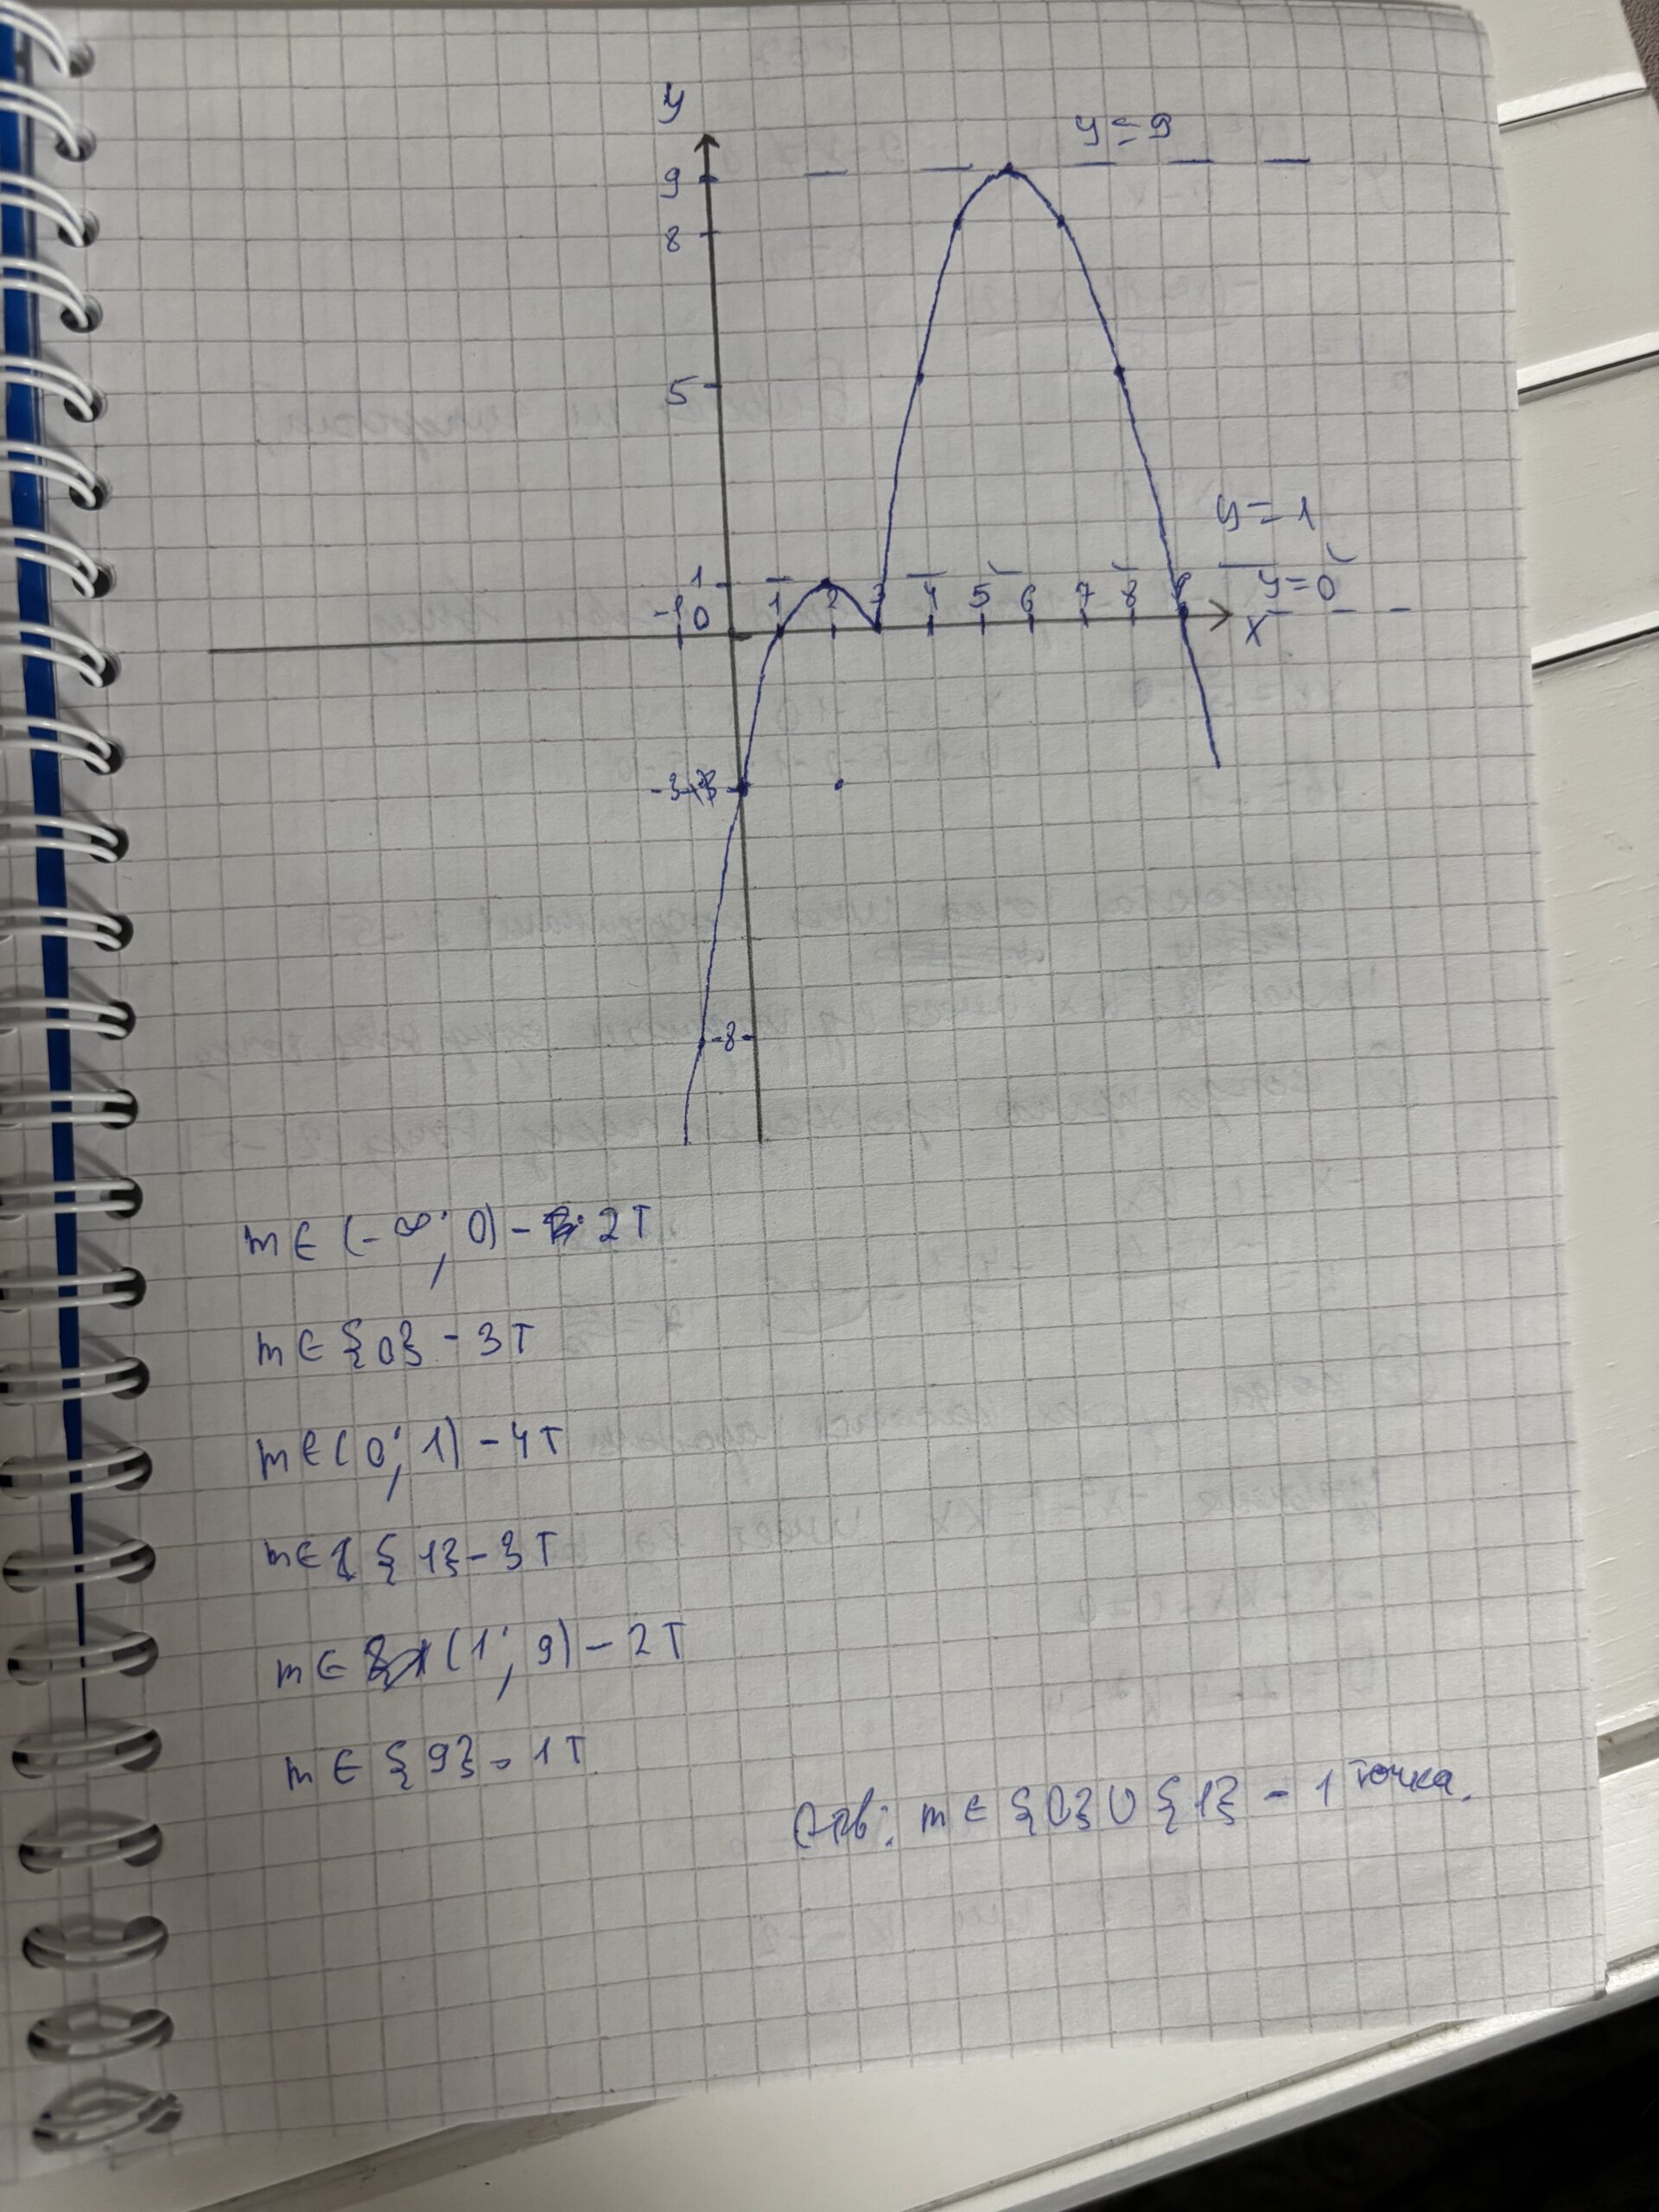 y
y = 9
9
8
5
y = 1
1
y = 0
-1 0 1 2 3 4 5 6 7 8 9
x
-3
-8
m ∈ (-∞; 0) - 2 т
m ∈ {0} - 3 т
m ∈ (0; 1) - 4 т
m ∈ {1} - 3 т
m ∈ (1; 9) - 2 т
m ∈ {9} - 1 т
Отв: m ∈ {0} ∪ {1} - 1 точка.